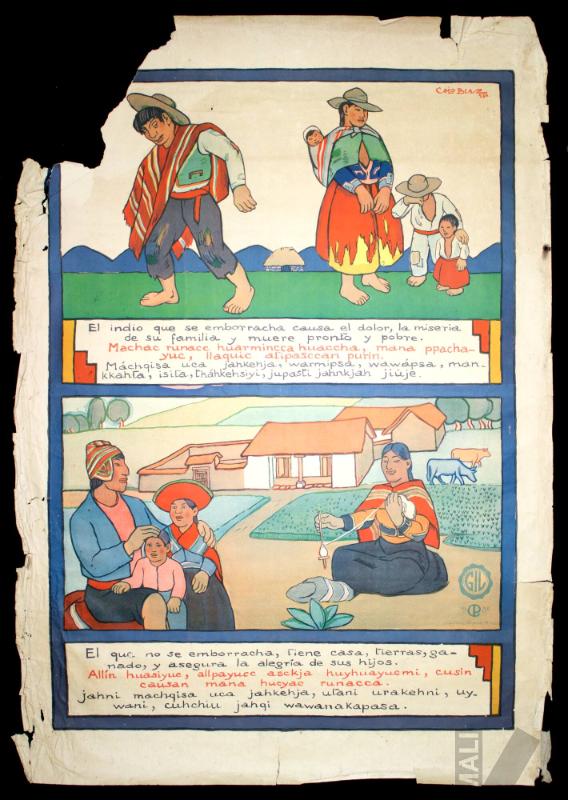 El indio que se emborracha causa el dolor, la miseria
de su familia y muere pronto y pobre.
Machac runacc huarmincca huaccha, mana ppacha-
yuc, llaquic atipasccan purin.
Máchqisa uca jahkehja, warmipsa, wawápsa, man-
kkahta, isita, tháhkehsiyi, jupasti jahnkjah jiuje.
El que no se emborracha, tiene casa, tierras, ga-
nado, y asegura la alegría de sus hijos.
Allin huasiyuc, allpayucc asckja huyhuayucmi, cusin
causan mana hucyac runacca.
jahni machqisa uca jahkehja, utani urakehni, uy-
wani, cuhchiu jahqi wawanakapasa.
GIL
MALI